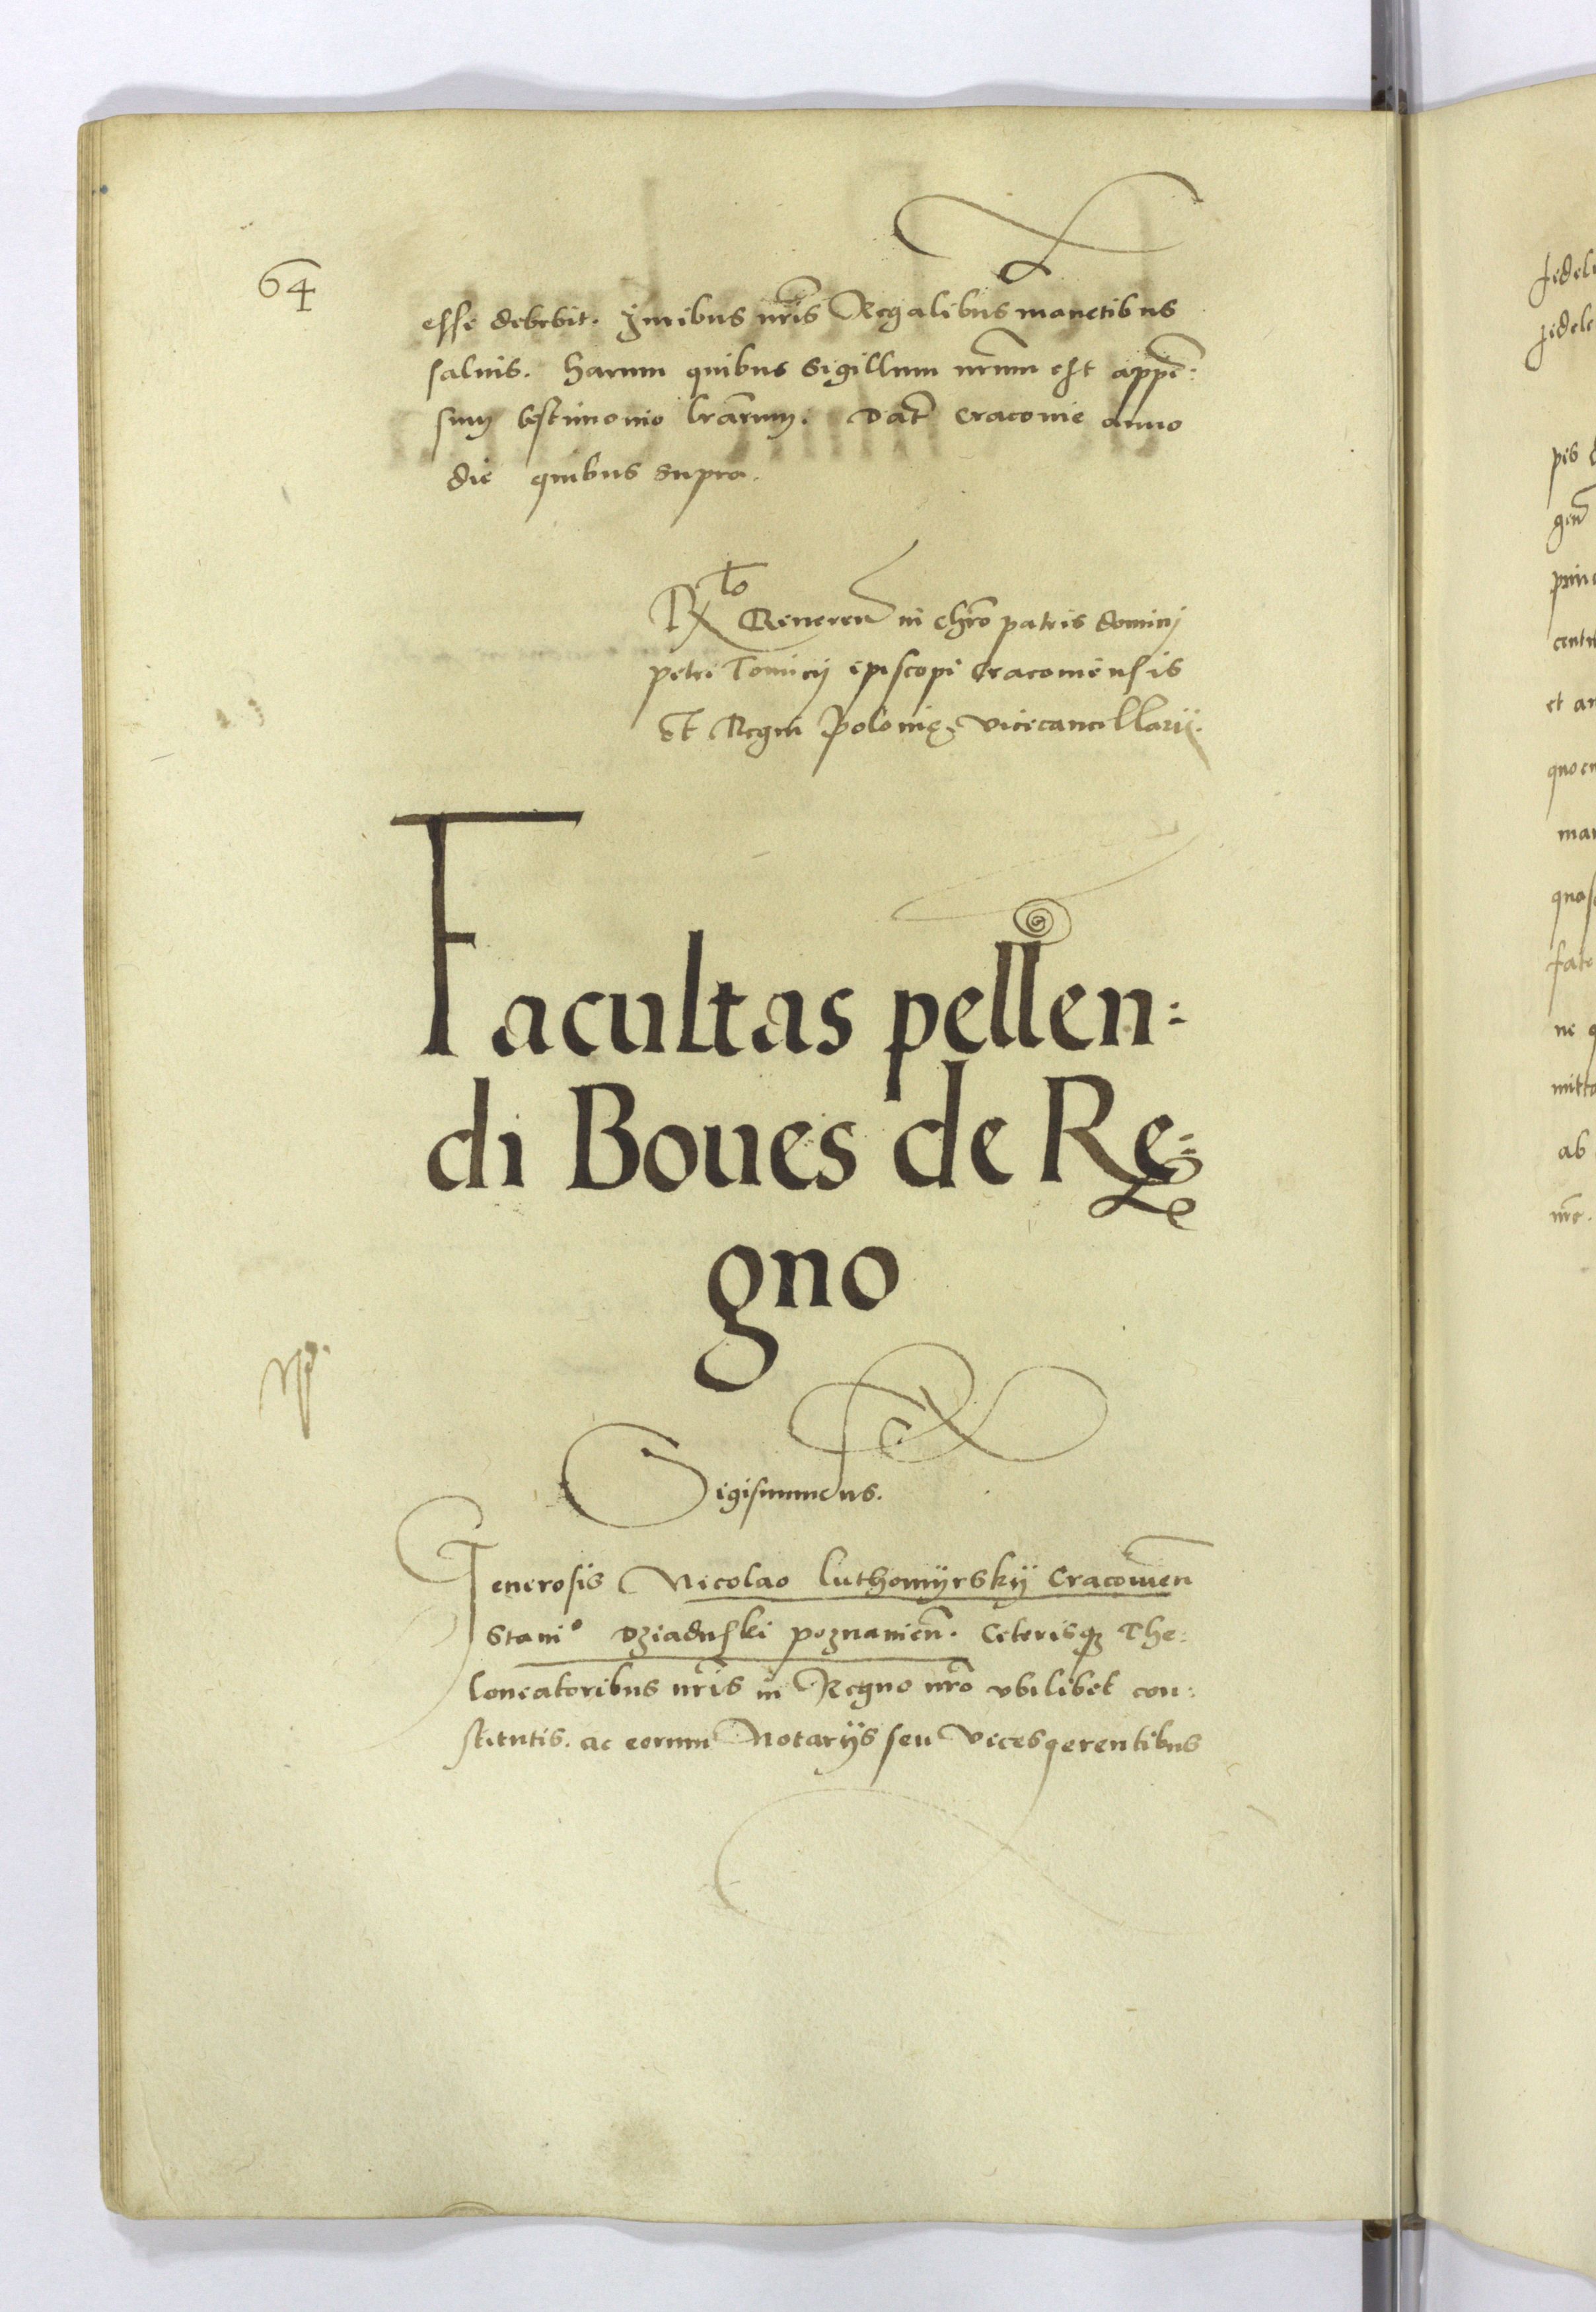 64
esse debebit. Juribus nr̃is Regalibus manetibus
saluis. Harum quibus Sigillum nr̃um est appẽ:
sum testimonio lr̃arum. Dat̃ Cracouie anno
die quibus supra.
Rto Reueren̄ in chr̃o patris dominij
petri Tomicij episcopi Cracouiensis
Et Regni Polonię Vicecancellarij.
Facultas pellen:
di Boues de Re:
gno
Sigismundus.
Generosis Nicolao Luthomÿrskÿ Cracouien̄
Stanio Dziaduski poznanien̄. Ceterisqꝫ The:
loneatoribus nr̃is in Regno nr̃o vbilibet con:
stitutis. ac eorum Notarÿs seu Vicesgerentibus